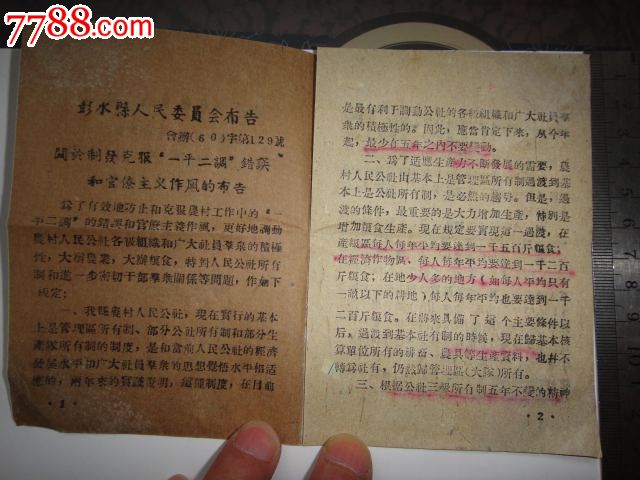 7788.com
彭水縣人民委員会布告
会辦(60)字第129號
関於制發克服“一平二調”錯誤
和官僚主义作風的布告
為了有效地防止和克服農村工作中的“一
平二調”的錯誤和官僚主义作風，更好地調動
農村人民公社各級組織和广大社員羣衆的積極
性，大辦農業，大辦粮食，特對人民公社所有
制和進一步密切干部羣衆關係等問題，作如下
規定：
一、我縣農村人民公社，現在實行的基本
上是管理區所有制、部分公社所有制和部分生
產隊所有制的制度，是和當前人民公社的經濟
發展水平和广大社員羣衆的思想覺悟水平相适
應的，兩年來的實踐證明，這種制度，在目前
·1·
是最有利于調動公社的各級組織和广大社員羣
衆的積極性的。因此，應當肯定下來，从今年
起，最少有五年之內不要變動。
二、為了适應生產力不断發展的需要，農
村人民公社由基本上是管理區所有制过渡到基
本上是公社所有制，是必然的趨势。但是，過
渡的條件，最重要的是大力增加生產，特别是
增加粮食生產。現在規定要實現這一過渡，在
產粮區每人每年平均要達到一千五百斤粮食；
在經濟作物區，每人每年平均要達到一千二百
斤粮食；在地少人多的地方（如每人平均只有
一畝以下的耕地）每人每年平均也要達到一千
二百斤粮食。在將來具備了這个主要條件以
后，過渡到基本社有制的時候，現在歸基本核
算單位所有的耕畜、農具等生產資料，也并不
轉為社有，仍然歸管理區（大隊）所有。
三、根据公社三級所有制五年不變的精神
·2·